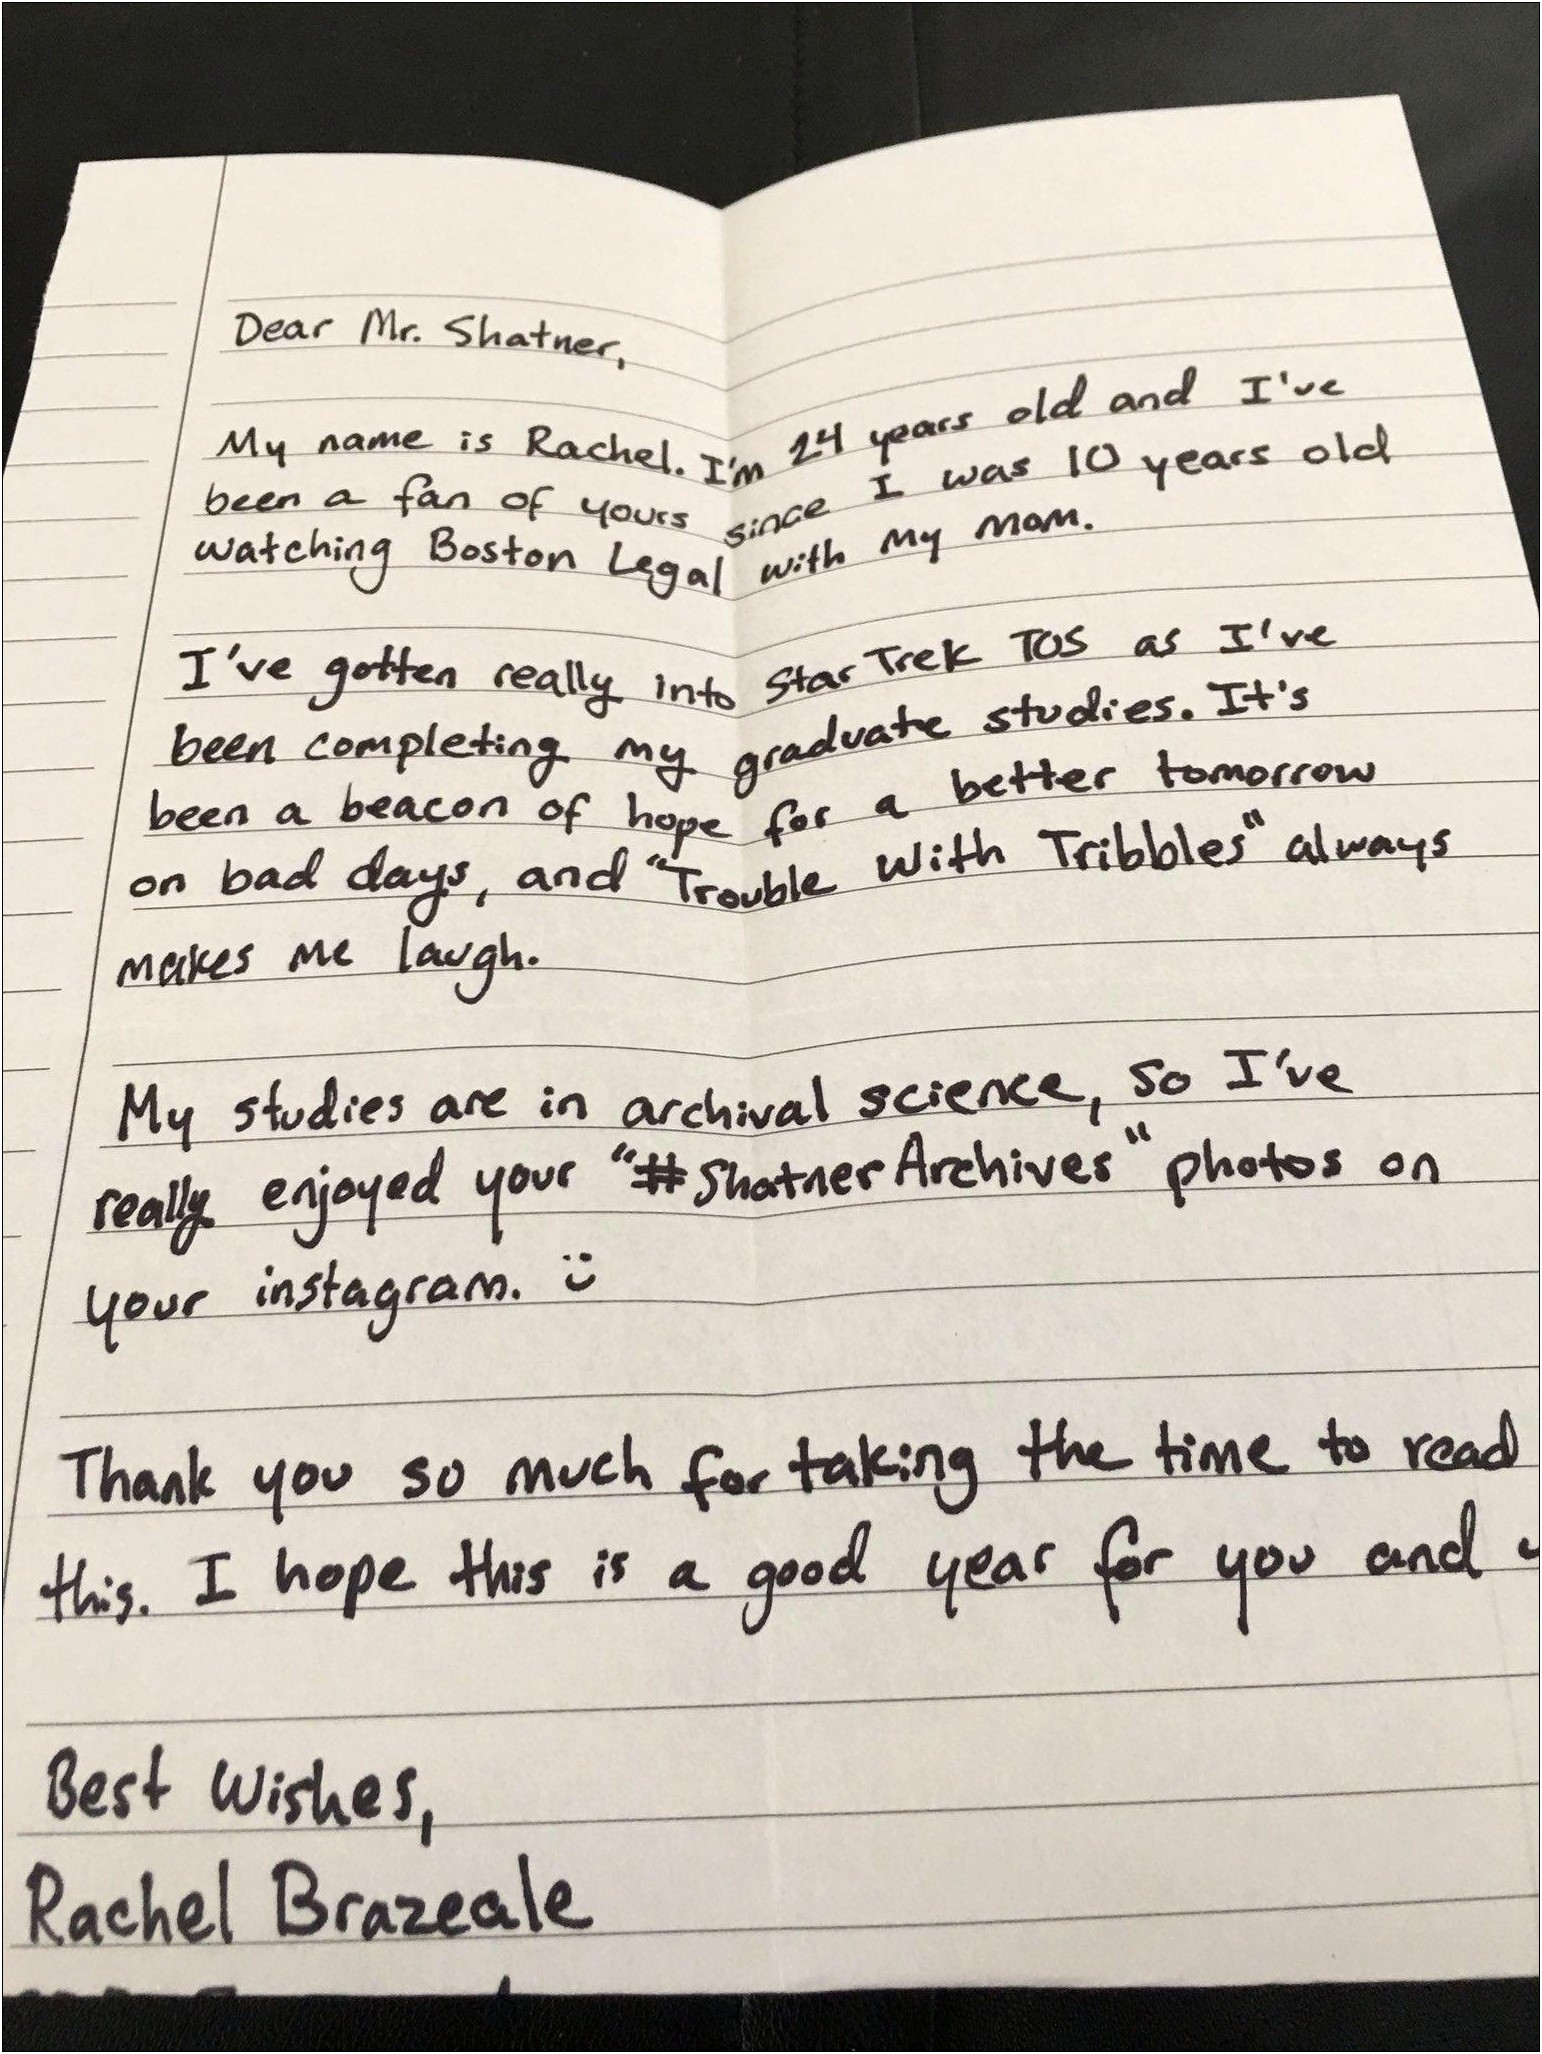 Dear Mr. Shatner,
My name is Rachel. I'm 24 years old and I've
been a fan of yours since I was 10 years old
watching Boston Legal with my mom.
I've gotten really into Star Trek TOS as I've
been completing my graduate studies. It's
been a beacon of hope for a better tomorrow
on bad days, and "Trouble With Tribbles" always
makes me laugh.
My studies are in archival science, so I've
really enjoyed your "#ShatnerArchives" photos on
your instagram. :)
Thank you so much for taking the time to read
this. I hope this is a good year for you and
Best Wishes,
Rachel Brazeale